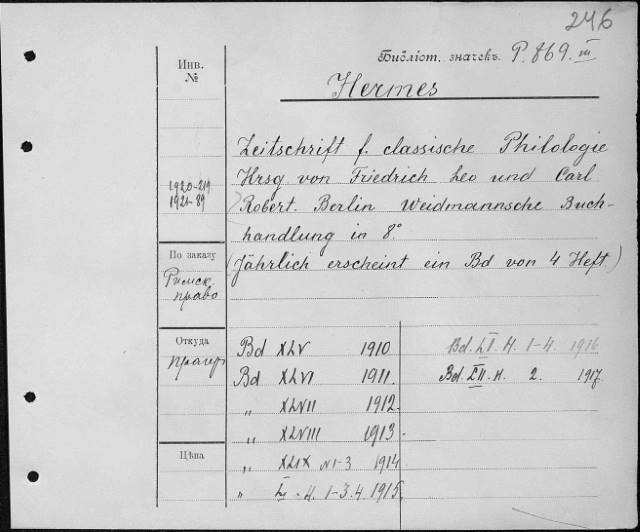 246
Библіот. значекъ P. 869. III
Инв.
№
Hermes
Zeitschrift f. classische Philologie
Hrsg von Friedrich Leo und Carl
1920-219
1921-89
Robert. Berlin Weidmannsche Buch-
handlung in 8°
По заказу
(Jährlich erscheint ein Bd von 4 Heft.)
Римск.
право
Откуда
Bd XLV 1910 Bd. LI. H. 1-4. 1916
Bd XLVI 1911. Bd. LII. H. 2. 1917.
„ XLVII 1912.
„ XLVIII 1913.
Цѣна
„ XLIX N 1-3 1914
„ L. H. 1-3.4. 1915.